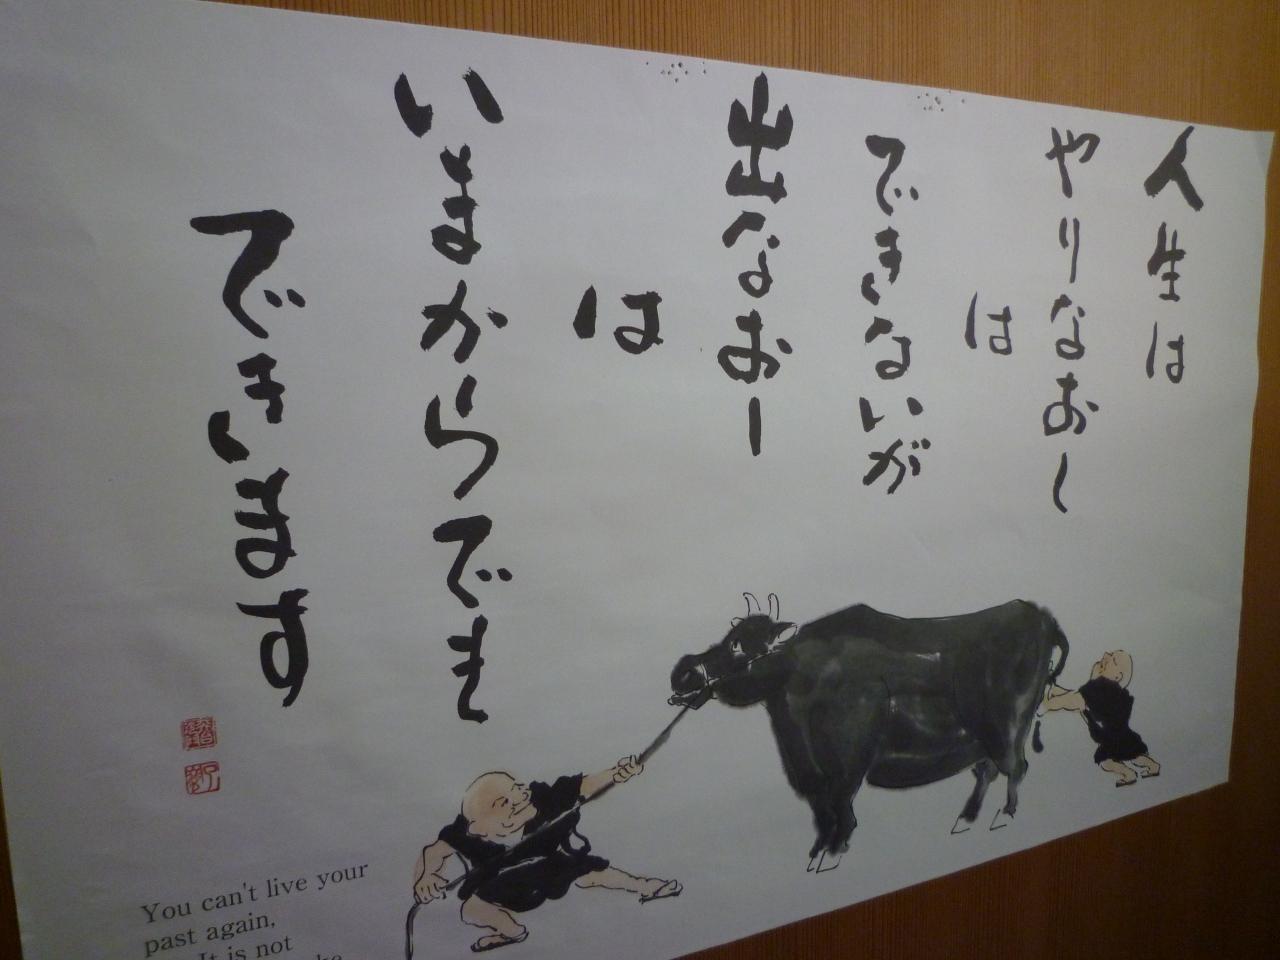 人生は
やりなおし
は
できないが
出なおし
は
いまからでも
できます
You can't live your
past again,
It is not